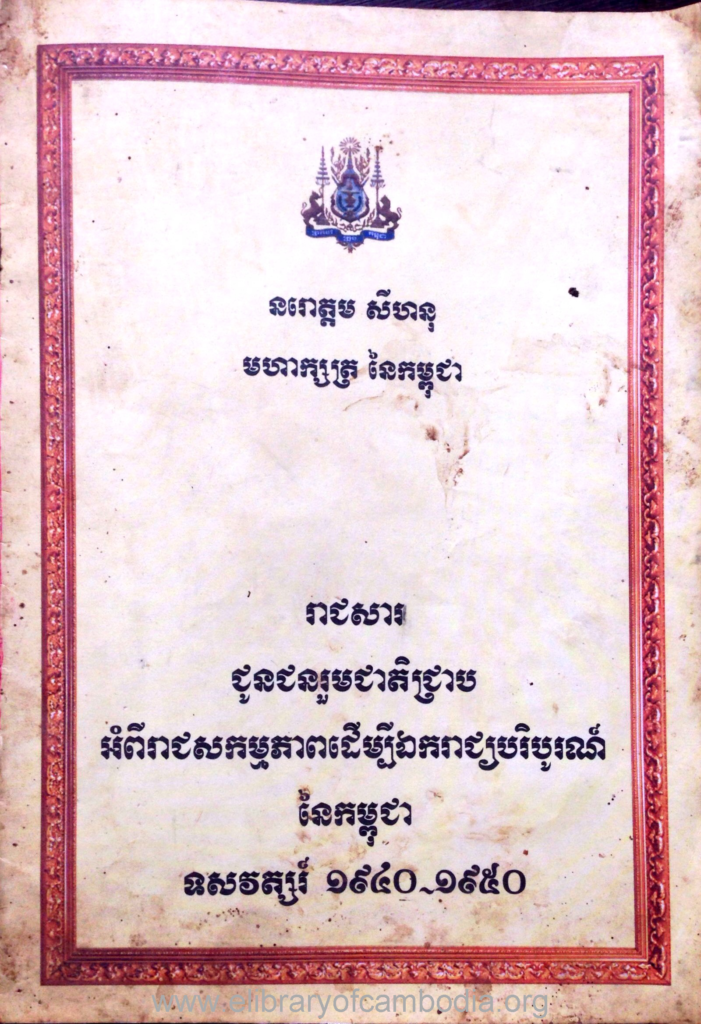 នរោត្តម សីហនុ
មហាក្សត្រ នៃកម្ពុជា
រាជសារ
ជូនជនរួមជាតិជ្រាប
អំពីរាជសកម្មភាពដើម្បីឯករាជ្យបរិបូរណ៍
នៃកម្ពុជា
ទសវត្សរ៍ ១៩៤០~១៩៥០
www.elibraryofcambodia.org